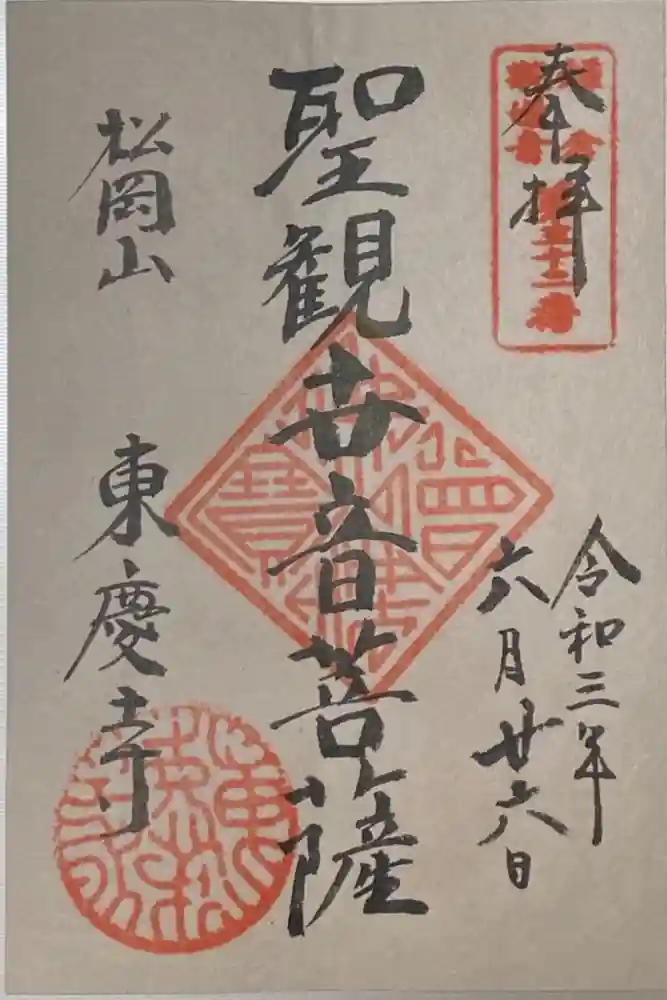 奉拝
三十二番
令和三年
六月廿六日
聖観世音菩薩
松岡山 東慶寺